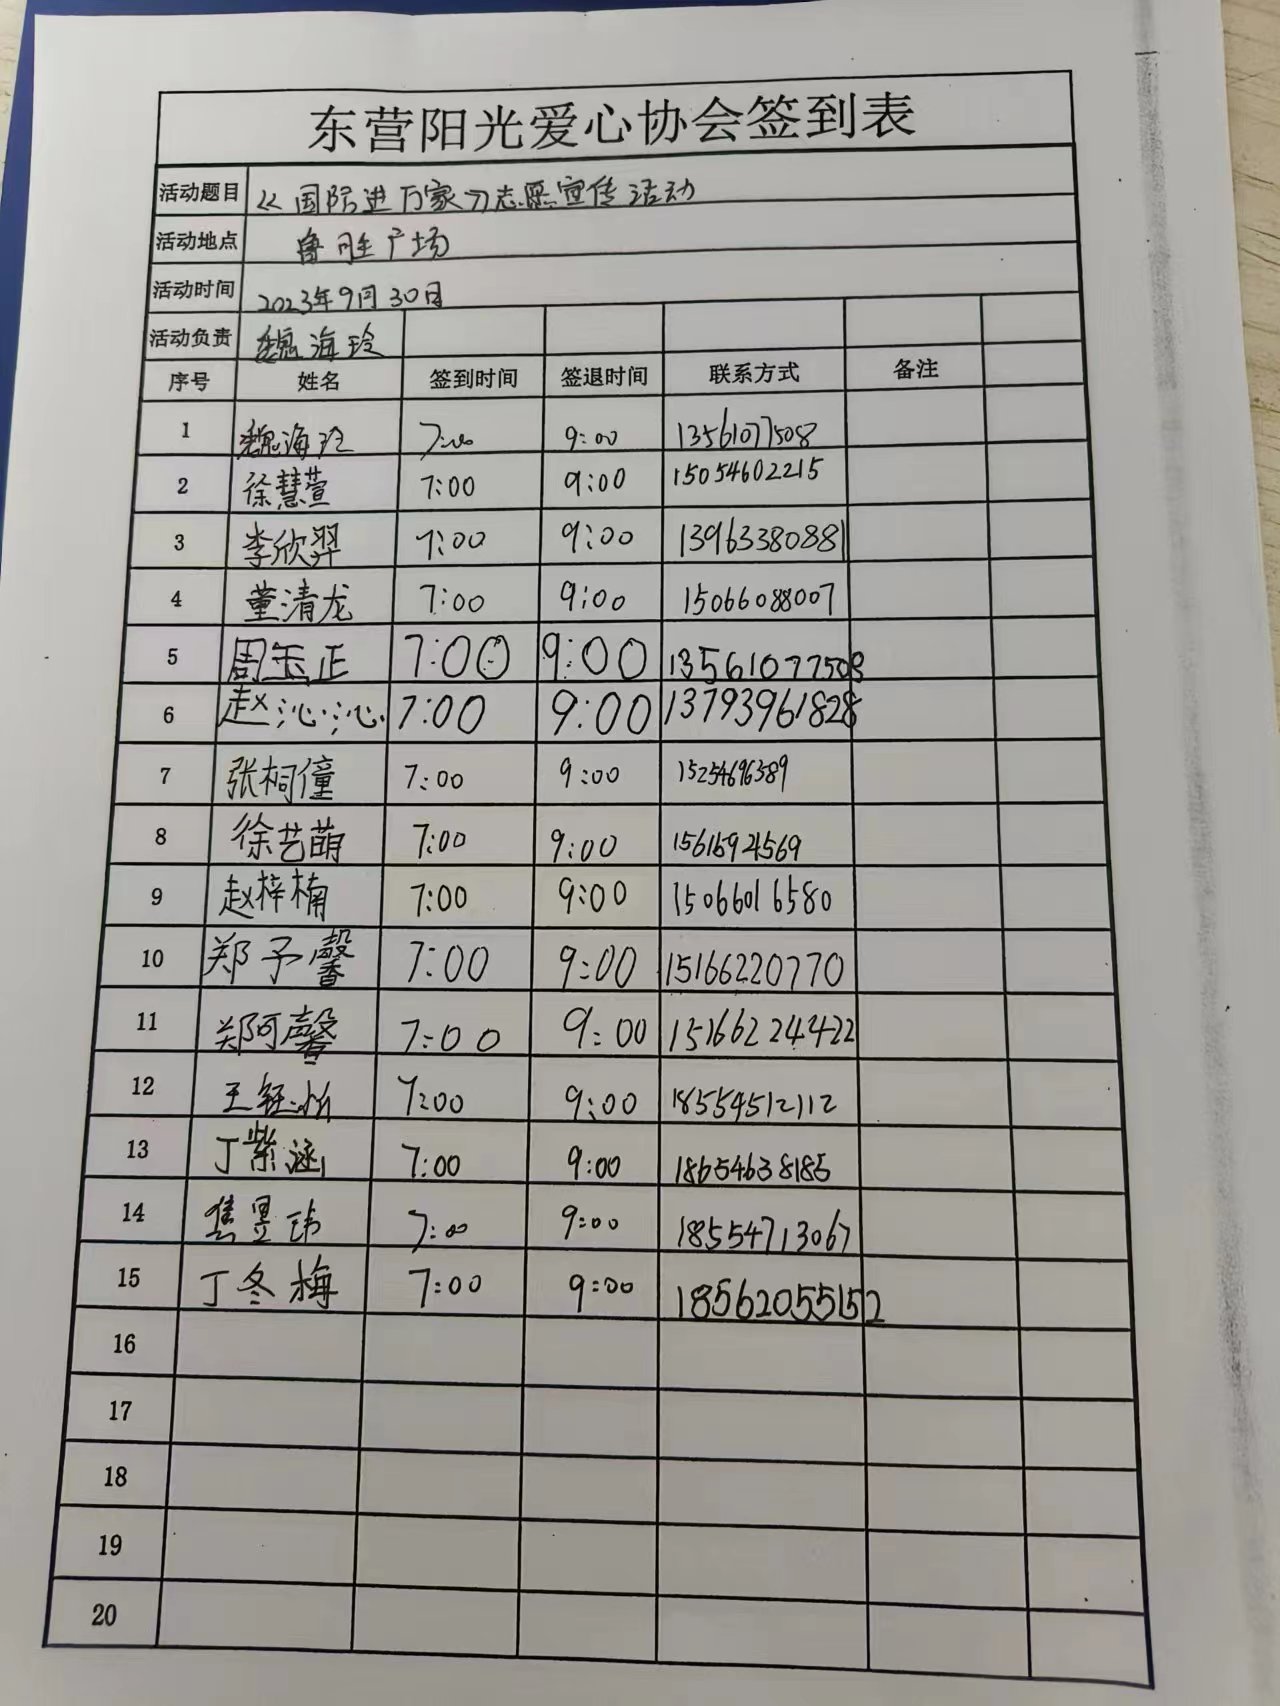 东营阳光爱心协会签到表
活动题目 《国际进万家》志愿宣传活动
活动地点 鲁胜广场
活动时间 2023年9月30日
活动负责 魏海玲
序号 姓名 签到时间 签退时间 联系方式 备注
1 魏海玲 7:00 9:00 13561077508
2 徐慧萱 7:00 9:00 15054602215
3 李欣羿 7:00 9:00 13963380881
4 董清龙 7:00 9:00 15066088007
5 周玉正 7:00 9:00 13561077508
6 赵沁沁 7:00 9:00 13793961828
7 张桐僮 7:00 9:00 15254696389
8 徐艺萌 7:00 9:00
9 赵梓楠 7:00 9:00 15066016580
10 郑予馨 7:00 9:00 15166220770
11 郑阿馨 7:00 9:00 15166224422
12 王钰怡 7:00 9:00 18554512112
13 丁紫涵 7:00 9:00 18654638185
14 焦昱玮 7:00 9:00 18554713067
15 丁冬梅 7:00 9:00 18562055152
16
17
18
19
20